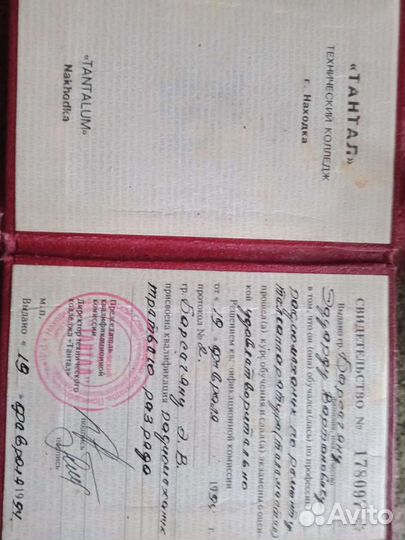 «ТАНТАЛ»
ТЕХНИЧЕСКИЙ КОЛЛЕДЖ
г. Находка
«TANTALUM»
Nakhodka
СВИДЕТЕЛЬСТВО № 17809
Выдано гр. Барсегяну
Эдуарду Вартановичу
в том, что он (она) обучался (лась) по профессии
радиомеханик по ремонту
телеаппаратуры
прошел (а) курс обучения и сдал (а) экзамены с оцен-
кой удовлетворительно
Решением квалификационной комиссии
от «19» февраля 1994 г.
протокол № 2.
гр. Барсегяну Э. В.
присвоена квалификация радиомеханик
третьего разряда
Председатель
квалификационной
комиссии
подпись
Директор технического
колледжа «Тантал»
подпись
М.П.
Выдано «19» февраля 1994.
Avito